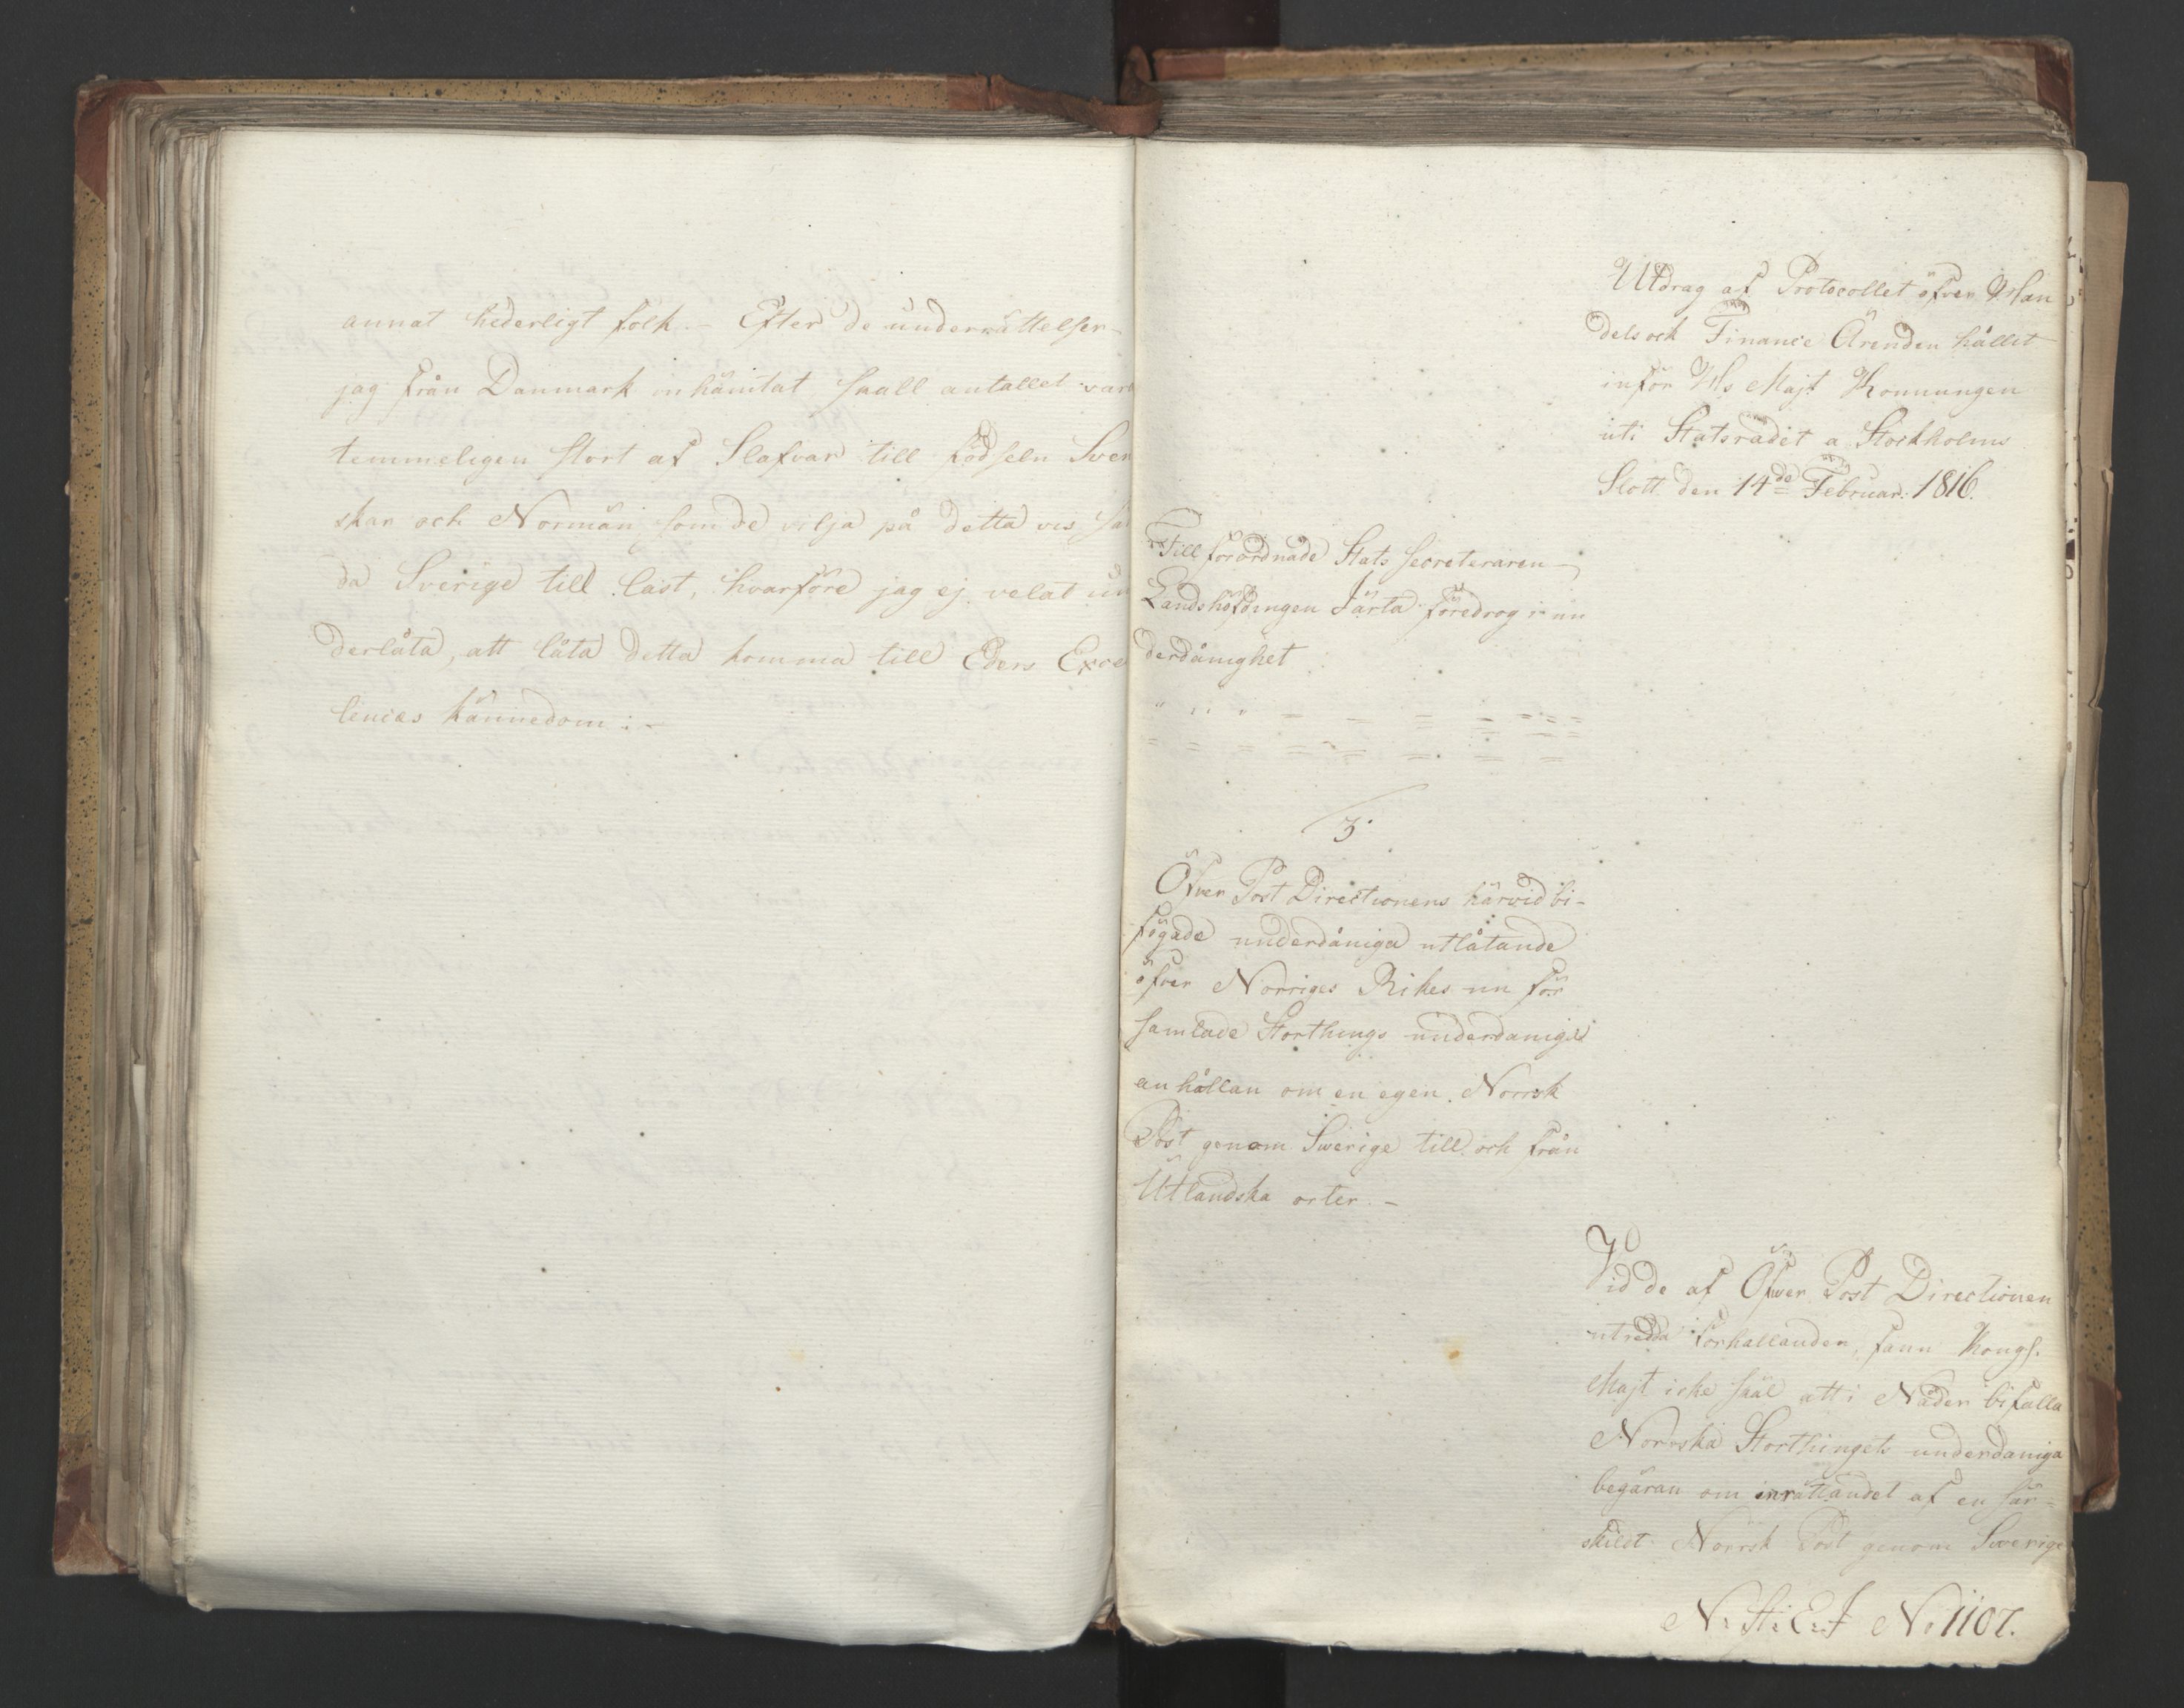 annat hederligt folk. – Efter de underrättelser
jag från Danmark inhämtat skall antallet vara
temmeligen stort af Slafvar till födseln Sven
skar och Normän, som de vilja på detta vis
da Sverige till last, hvarföre jag ej velat un
derlåta, att låta detta komma till Eders Exce
lences kännedom: –
Utdrag af Protocollet öfver Han
dels och Finance Ärenden hållet
inför Hs Majt Konnungen
uti Statsrådet a Stockholms
Slott den 14de Februar. 1816.
Till förordnade Stats Secreteraren
Landshöfdingen Järta föredrog i un
derdånighet
" " " " = = = = = = =
= = = = = = = = =
3.
Öfver Post Directionens härvid bi-
fogade underdåniga utlåtande
öfver Norriges Rikes nu för
samlade Storthings underdaniga
anhållan om en egen Norrsk
Post genom Swerige till och från
Utlandska orter. –
Vid de af Öfwer Post Directionen
utredda förhallanden, fann Kongl.
Majt icke skäl att i Nåder bifalla
Norrska Storthingets underdaniga
begäran om inrättandet af en sär=
skildt Norrsk Post genom Swerige
N: St: E: J No 1107.